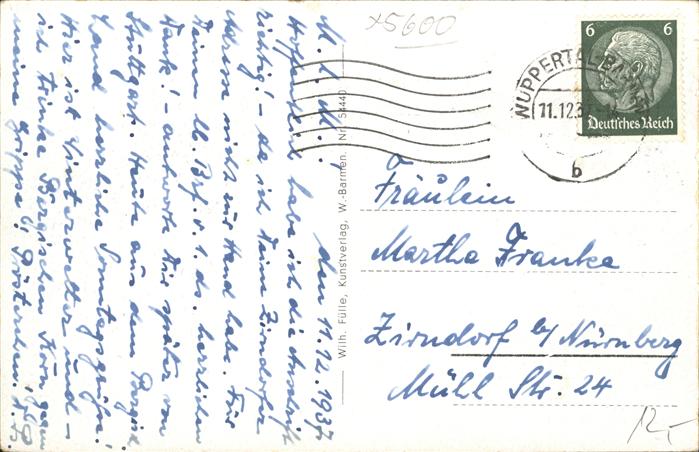 M. l. M.! den 11.12.1937
Hoffentlich habe ich die Anschrift
richtig! – da ich Deine Zirndorfer
Adresse nicht zur Hand habe. Für
Deinen lb. Brf. v. 1. ds. herzlichen
Dank! – antworte Dir später von
Stuttgart. Heute aus dem Bergisch.
Land herzliche Sonntagsgrüße!
Hier ist Winterwetter und –
ich trinke Bergischen Korn gegen
meine Grippe
Wilh. Fülle, Kunstverlag, W.-Barmen. Nr. 54440
x5600
WUPPERTAL-BARMEN
11.12.37
b
6 6
Deutsches Reich
Fräulein
Martha Franke
Zirndorf b/Nürnberg
Mühl Str. 24
12,-